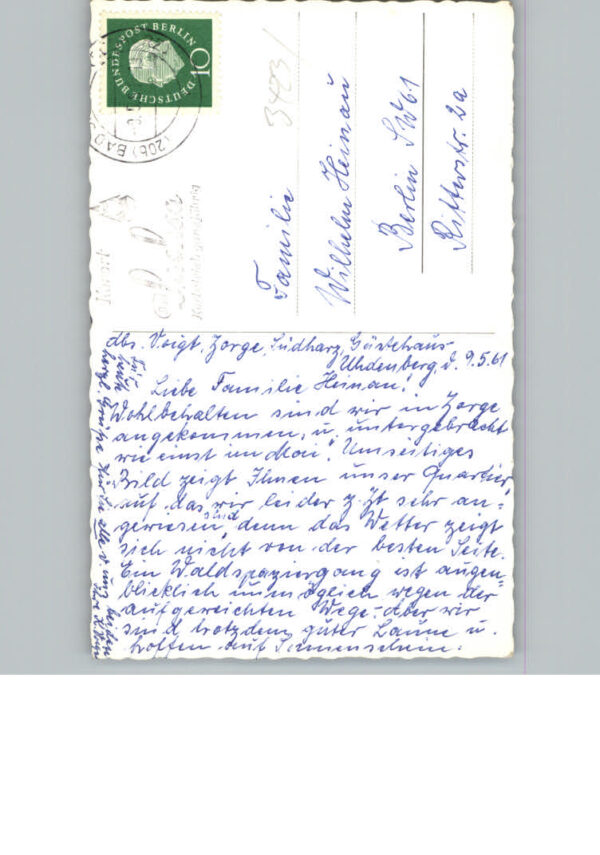 DEUTSCHE BUNDESPOST BERLIN
10
(20b) BAD
Kurort
3423/
Familie
Wilhelm Heinau
Berlin SW 61
Ritterstr. 2a
dbs. Voigt, Zorge, Südharz, Gästehaus
Uhdenberg, d. 9.5.61
Liebe Familie Heinau!
Wohlbehalten sind wir in Zorge
angekommen, u. untergebracht
wie einst im Mai". Umseitiges
Bild zeigt Ihnen unser Quartier,
auf das wir leider z. Zt sehr an-
gewiesen sind, denn das Wetter zeigt
sich nicht von der besten Seite.
Ein Waldspaziergang ist augen-
blicklich unmöglich wegen der
aufgeweichten Wege. - Aber wir
sind trotzdem guter Laune u.
hoffen auf Sonnenschein.
Für heute
herzl. Grüße